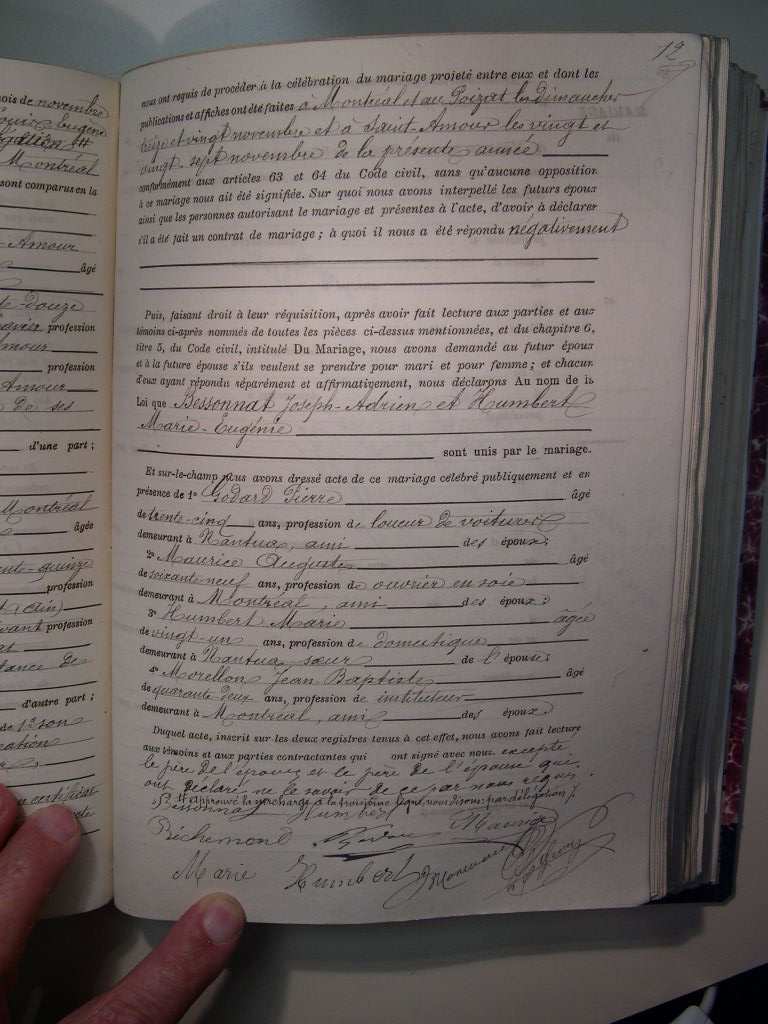 nois de novembre
Louis Eugène
Montréal
sont comparus en la
Amour
âgé
te douze
profession
Amour
profession
Amour
de ses
d'une part ;
Montréal
âgée
ente-quinze
profession
(Ain)
vant profession
sat
stance de
d'autre part ;
de 1° son
cation
certificat
12
nous ont requis de procéder à la célébration du mariage projeté entre eux et dont les
publications et affiches ont été faites à Montréal et au Poizat les dimanches
treize et vingt novembre et à Saint-Amour les vingt et
vingt-sept novembre de la présente année
conformément aux articles 63 et 64 du Code civil, sans qu'aucune opposition
à ce mariage nous ait été signifiée. Sur quoi nous avons interpellé les futurs époux
ainsi que les personnes autorisant le mariage et présentes à l'acte, d'avoir à déclarer
s'il a été fait un contrat de mariage ; à quoi il nous a été répondu négativement
Puis, faisant droit à leur réquisition, après avoir fait lecture aux parties et aux
témoins ci-après nommés de toutes les pièces ci-dessus mentionnées, et du chapitre 6,
titre 5, du Code civil, intitulé Du Mariage, nous avons demandé au futur époux
et à la future épouse s'ils veulent se prendre pour mari et pour femme ; et chacun
d'eux ayant répondu séparément et affirmativement, nous déclarons Au nom de la
Loi que Bessonnat Joseph-Adrien et Humbert
Marie-Eugénie
sont unis par le mariage.
Et sur-le-champ nous avons dressé acte de ce mariage célébré publiquement et en
présence de 1° Godard Pierre âgé
de trente-cinq ans, profession de loueur de voitures
demeurant à Nantua, ami des époux ;
2° Maurice Auguste âgé
de soixante neuf ans, profession de ouvrier en soie
demeurant à Montréal, ami des époux ;
3° Humbert Marie âgée
de vingt-un ans, profession de domestique
demeurant à Nantua, sœur de l'épouse ;
4° Morellon Jean Baptiste âgé
de quarante deux ans, profession de instituteur
demeurant à Montréal, ami des époux.
Duquel acte, inscrit sur les deux registres tenus à cet effet, nous avons fait lecture
aux témoins et aux parties contractantes qui ont signé avec nous excepté
le père de l'époux et le père de l'épouse qui
ont déclaré ne le savoir de ce par nous requis.
approuvé la surcharge à la troisième ligne, nous disons par délégation
Bessonnat Humbert
Richemond Godard Maurice
Marie Humbert